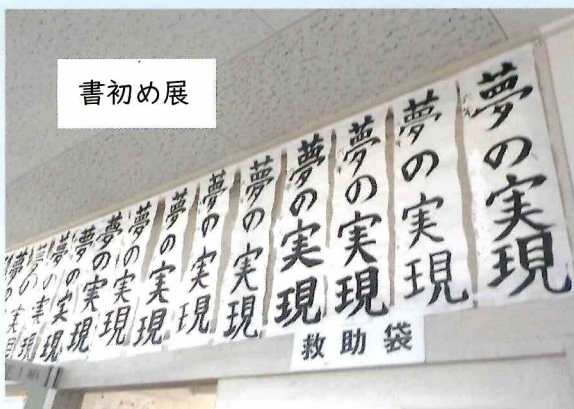 書初め展
夢の実現
夢の実現
夢の実現
夢の実現
夢の実現
夢の実現
夢の実現
夢の実現
夢の実現
夢の実現
夢の実現
夢の実現
救助袋